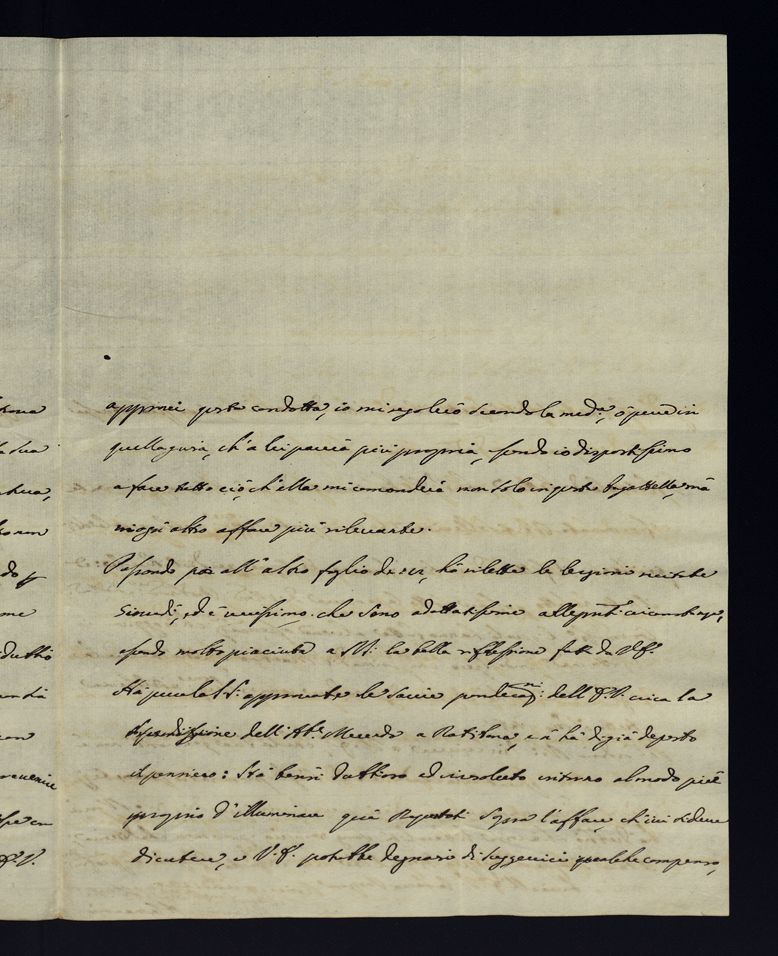 approvi questa condotta, io mi regolerò secondo la med.ª, ò pure in
quella guisa, ch'a lei parerà più propria, sendo io dispostissimo
a fare tutto ciò ch'ella mi comanderà non solo in questa bagattella, mà
in ogni altro affare più rilevante.
Passando poi all'altro foglio de 12, hò riletto le lezioni recitate
Giovedì, ed è verissimo che sono adattatissime alle pnti circostanze,
essendo molto piaciuta a la bella riflessione fatta da V.P.
Hà pure la approvate le savie ponderazni: dell P.V. circa la
spedizione dell'Ab.e a Ratisbona, e n'hà di già deposto
il pensiero: Stà bensì dubbioso ed irresoluto intorno al modo più
proprio d'illuminare què Sopra l'affare, ch'ivi si deve
discutere, e V.P. potrebbe degnarsi di suggerirci qualche compenso,